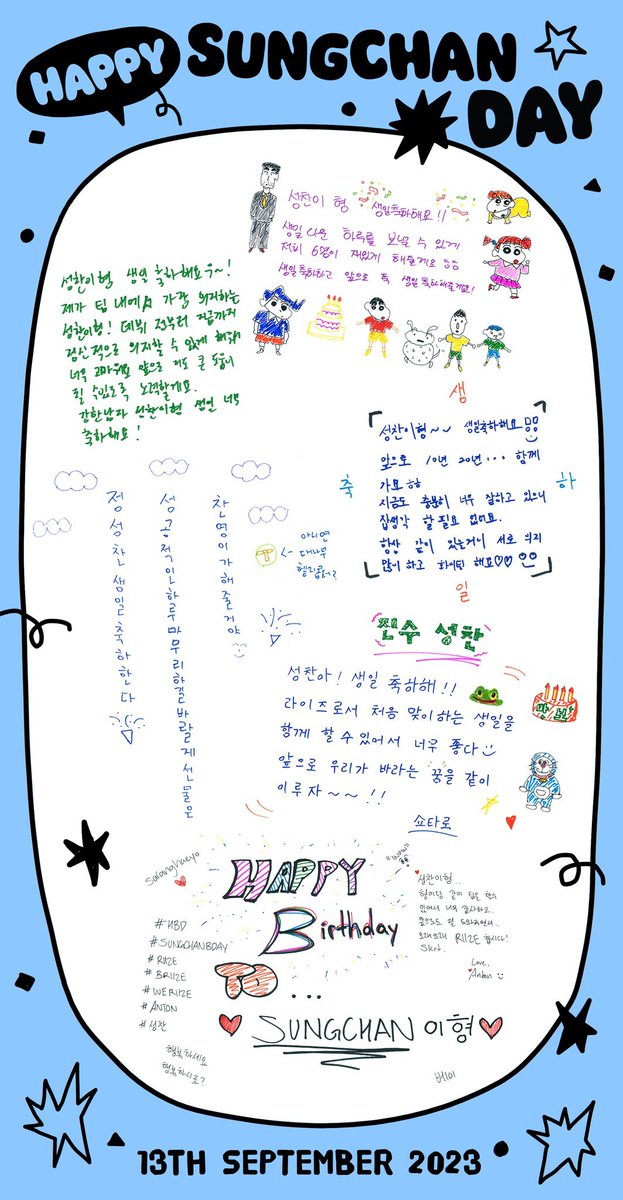 HAPPY
SUNGCHAN
DAY
성찬이 형 생일축하해요!!
생일 다운 하루를 보낼 수 있게
저희 6명이 재밌게 해줄게요 ㅎㅎ
생일 축하하고 앞으로 쭉 생일 축하해줄게요!
성찬이형 생일 축하해요우~!
제가 팀 내에서 가장 의지하는
성찬이형! 데뷔 전부터 지금까지
정신적으로 의지할 수 있게 해줘서
너무 고마워요 앞으로 저도 큰 도움이
될 수있도록 노력할게요.
강한남자 성찬이형 생일 너무
축하해요!
생
축
하
일
성찬이형~~ 생일축하해요
앞으로 10년 20년... 함께
가요 ㅎㅎ
지금도 충분히 너무 잘하고 있으니
잡생각 할 필요 없어요.
항상 같이 있는거니 서로 의지
많이 하고 화이팅 해요♡♡
정성찬생일축하한다
성공적인하루마무리하길바랄게선물은
찬영이가해줄거야
아니면
대나무
헬리콥터?
찐수 성찬
성찬아! 생일 축하해!!
라이즈로서 처음 맞이하는 생일을
함께 할 수 있어서 너무 좋다
앞으로 우리가 바라는 꿈을 같이
이루자~~!!
쇼타로
saranghaeyo
"wow"
HAPPY
Birthday
TO...
SUNGCHAN 이형
#HBD
#SUNGCHANBDAY
#RIIZE
#BRIIZE
#WERIIZE
#ANTON
#성찬
행복하세요
행복하시로?
성찬이형..
형이랑 같이 팀을 하고
있어서 너무 감사하고..
RIIZE 합시다!
Love,
Anton
13TH SEPTEMBER 2023